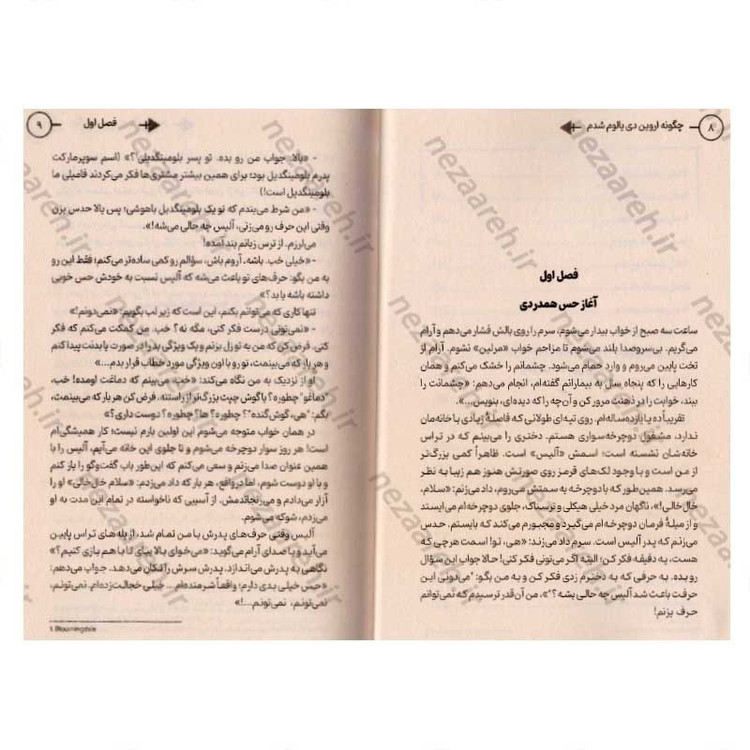 ۸
چگونه اروین دی یالوم شدم
فصل اول
آغاز حس همدردی
ساعت سه صبح از خواب بیدار می‌شوم، سرم را روی بالش فشار می‌دهم و آرام
می‌گریم. بی‌سروصدا بلند می‌شوم تا مزاحم خواب «مرلین» نشوم. آرام از
تخت پایین می‌روم و وارد حمام می‌شود. چشمانم را خشک می‌کنم و همان
کارهایی را که پنجاه سال به بیمارانم گفته‌ام، انجام می‌دهم: «چشمانت را
ببند، خوابت را در ذهنت مرور کن و آن‌چه را که دیده‌ای، بنویس...».
تقریباً ده یا یازده‌ساله‌ام. روی تپه‌ای طولانی که فاصلهٔ زیادی با خانه‌مان
ندارد، مشغول دوچرخه‌سواری هستم. دختری را می‌بینم که در تراس
خانه‌شان نشسته است؛ اسمش «آلیس» است. ظاهراً کمی بزرگ‌تر
از من است و با وجود لک‌های قرمز روی صورتش هنوز هم زیبا به نظر
می‌رسد. همین‌طور که با دوچرخه به سمتش می‌روم، داد می‌زنم: «سلام،
خال‌خالی!»، ناگهان مرد خیلی هیکلی و ترسناک، جلوی دوچرخه‌ام می‌ایستد
و از میلهٔ فرمان دوچرخه‌ام می‌گیرد و مجبورم می‌کند که بایستم. حدس
می‌زنم که پدر آلیس است. سرم داد می‌زند: «هی، تو! اسمت هرچی که
هست، یه دقیقه فکر کن؛ البته اگر می‌تونی فکر کنی! حالا جواب این سؤال
رو بده. به حرفی که به دخترم زدی فکر کن و به من بگو: "می‌دونی این
حرفت باعث شد آلیس چه حالی بشه؟"»، من آن‌قدر ترسیدم که نمی‌توانم
حرف بزنم!
فصل اول
۹
- «یالا. جواب من رو بده. تو پسر بلومینگدیلی؟» (اسم سوپرمارکت
پدرم بلومینگدیل بود؛ برای همین بیشتر مشتری‌ها فکر می‌کردند فامیلی ما
بلومینگدیل است!)
- «من شرط می‌بندم که تو یک بلومینگدیل باهوشی؛ پس یالا حدس بزن
وقتی این حرف رو می‌زنی، آلیس چه حالی می‌شه!».
می‌لرزم. از ترس زبانم بند آمده!
- «خیلی خب. باشه. آروم باش، سؤالم رو کمی ساده‌تر می‌کنم؛ فقط این رو
به من بگو: حرف‌های تو باعث می‌شه که آلیس نسبت به خودش حس خوبی
داشته باشه یا بد؟»
تنها کاری که می‌توانم بکنم، این است که زیر لب بگویم: «نمی‌دونم!»
- «نمی‌تونی درست فکر کنی، مگه نه؟ خب. من کمکت می‌کنم که فکر
کنی. فرض کن که من به تو زل بزنم و یک ویژگی بد را در صورت یا بدنت پیدا کنم
و هر بار که می‌بینمت، تو رو با اون ویژگی مورد خطاب قرار بدم...»
او از نزدیک به من نگاه می‌کند: «خب، می‌بینم که دماغت اومده! خب،
"دماغو" چطوره؟ یا گوش چپت بزرگ‌تر از راستته. فرض کن هر بار که می‌بینمت،
بگم: "هی، گوش‌گنده"؟ چطوره؟ ها؟ چطوره؟ دوست داری؟»
در همان خواب متوجه می‌شوم این اولین بارم نیست؛ کار همیشگی‌ام
است! هر روز سوار دوچرخه می‌شوم و تا جلوی این خانه می‌آیم، آلیس را با
همین عنوان صدا می‌زنم و سعی می‌کنم که این‌طور باب گفت‌وگو را باز کنم
و با او دوست شوم، اما در واقع، هر بار که داد می‌زدم: «سلام خال‌خالی» او را
آزار می‌دادم و می‌رنجاندمش. از آسیبی که ناخواسته در تمام این مدت به او
می‌زدم، شوکه می‌شوم.
آلیس وقتی حرف‌های پدرش با من تمام شد، از پله‌های تراس پایین
می‌آید و با صدای آرام می‌گوید: «می‌خوای بالا بیای تا با هم بازی کنیم؟»
نگاهی به پدرش می‌اندازد. پدرش سرش را تکان می‌دهد. جواب می‌دهم:
«حس خیلی بدی دارم؛ واقعاً شرمنده‌ام... خیلی خجالت‌زده‌ام. نمی‌تونم،
نمی‌تونم، نمی‌تونم...!»
1. Bloomingdale
nezaareh.ir